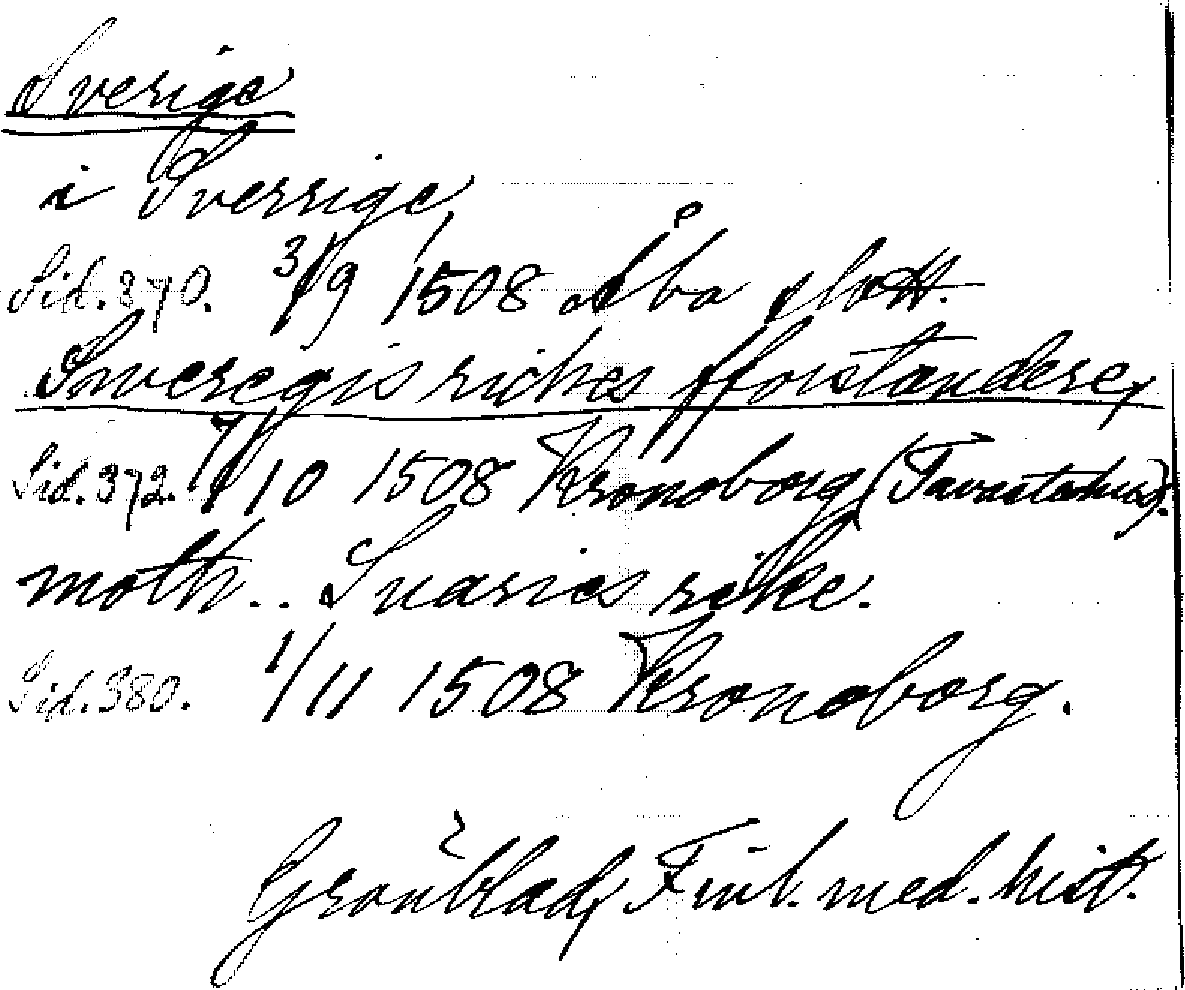 Sverige
i Sverrige,
Sid. 370. 3/9 1508 Åbo slott.
Sweregis rickes fforstandere,
Sid. 372. 7/10 1508 Kronoborg (Tavastehus).
moth .. Suaries rike.
Sid. 380. 1/11 1508 Kronoborg.
Grönblad, Finl. med. hist.